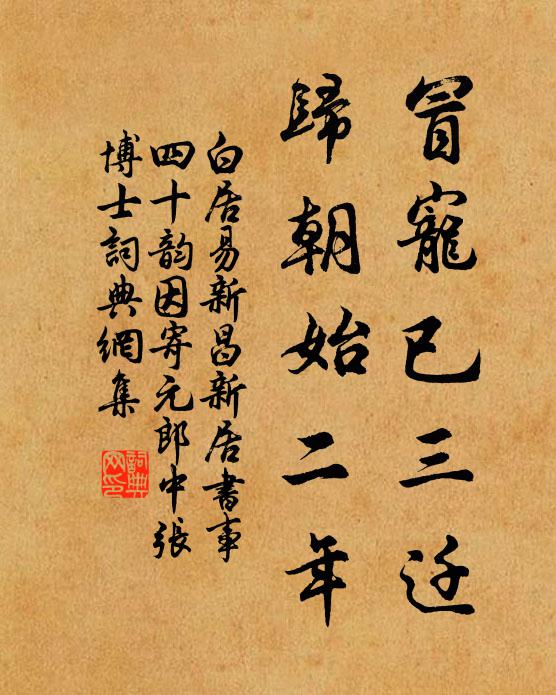 冒寵已三迁
歸朝始二年
白居易新昌新居書事
四十韵因寄元郎中張
博士詞典網集
詞典网印